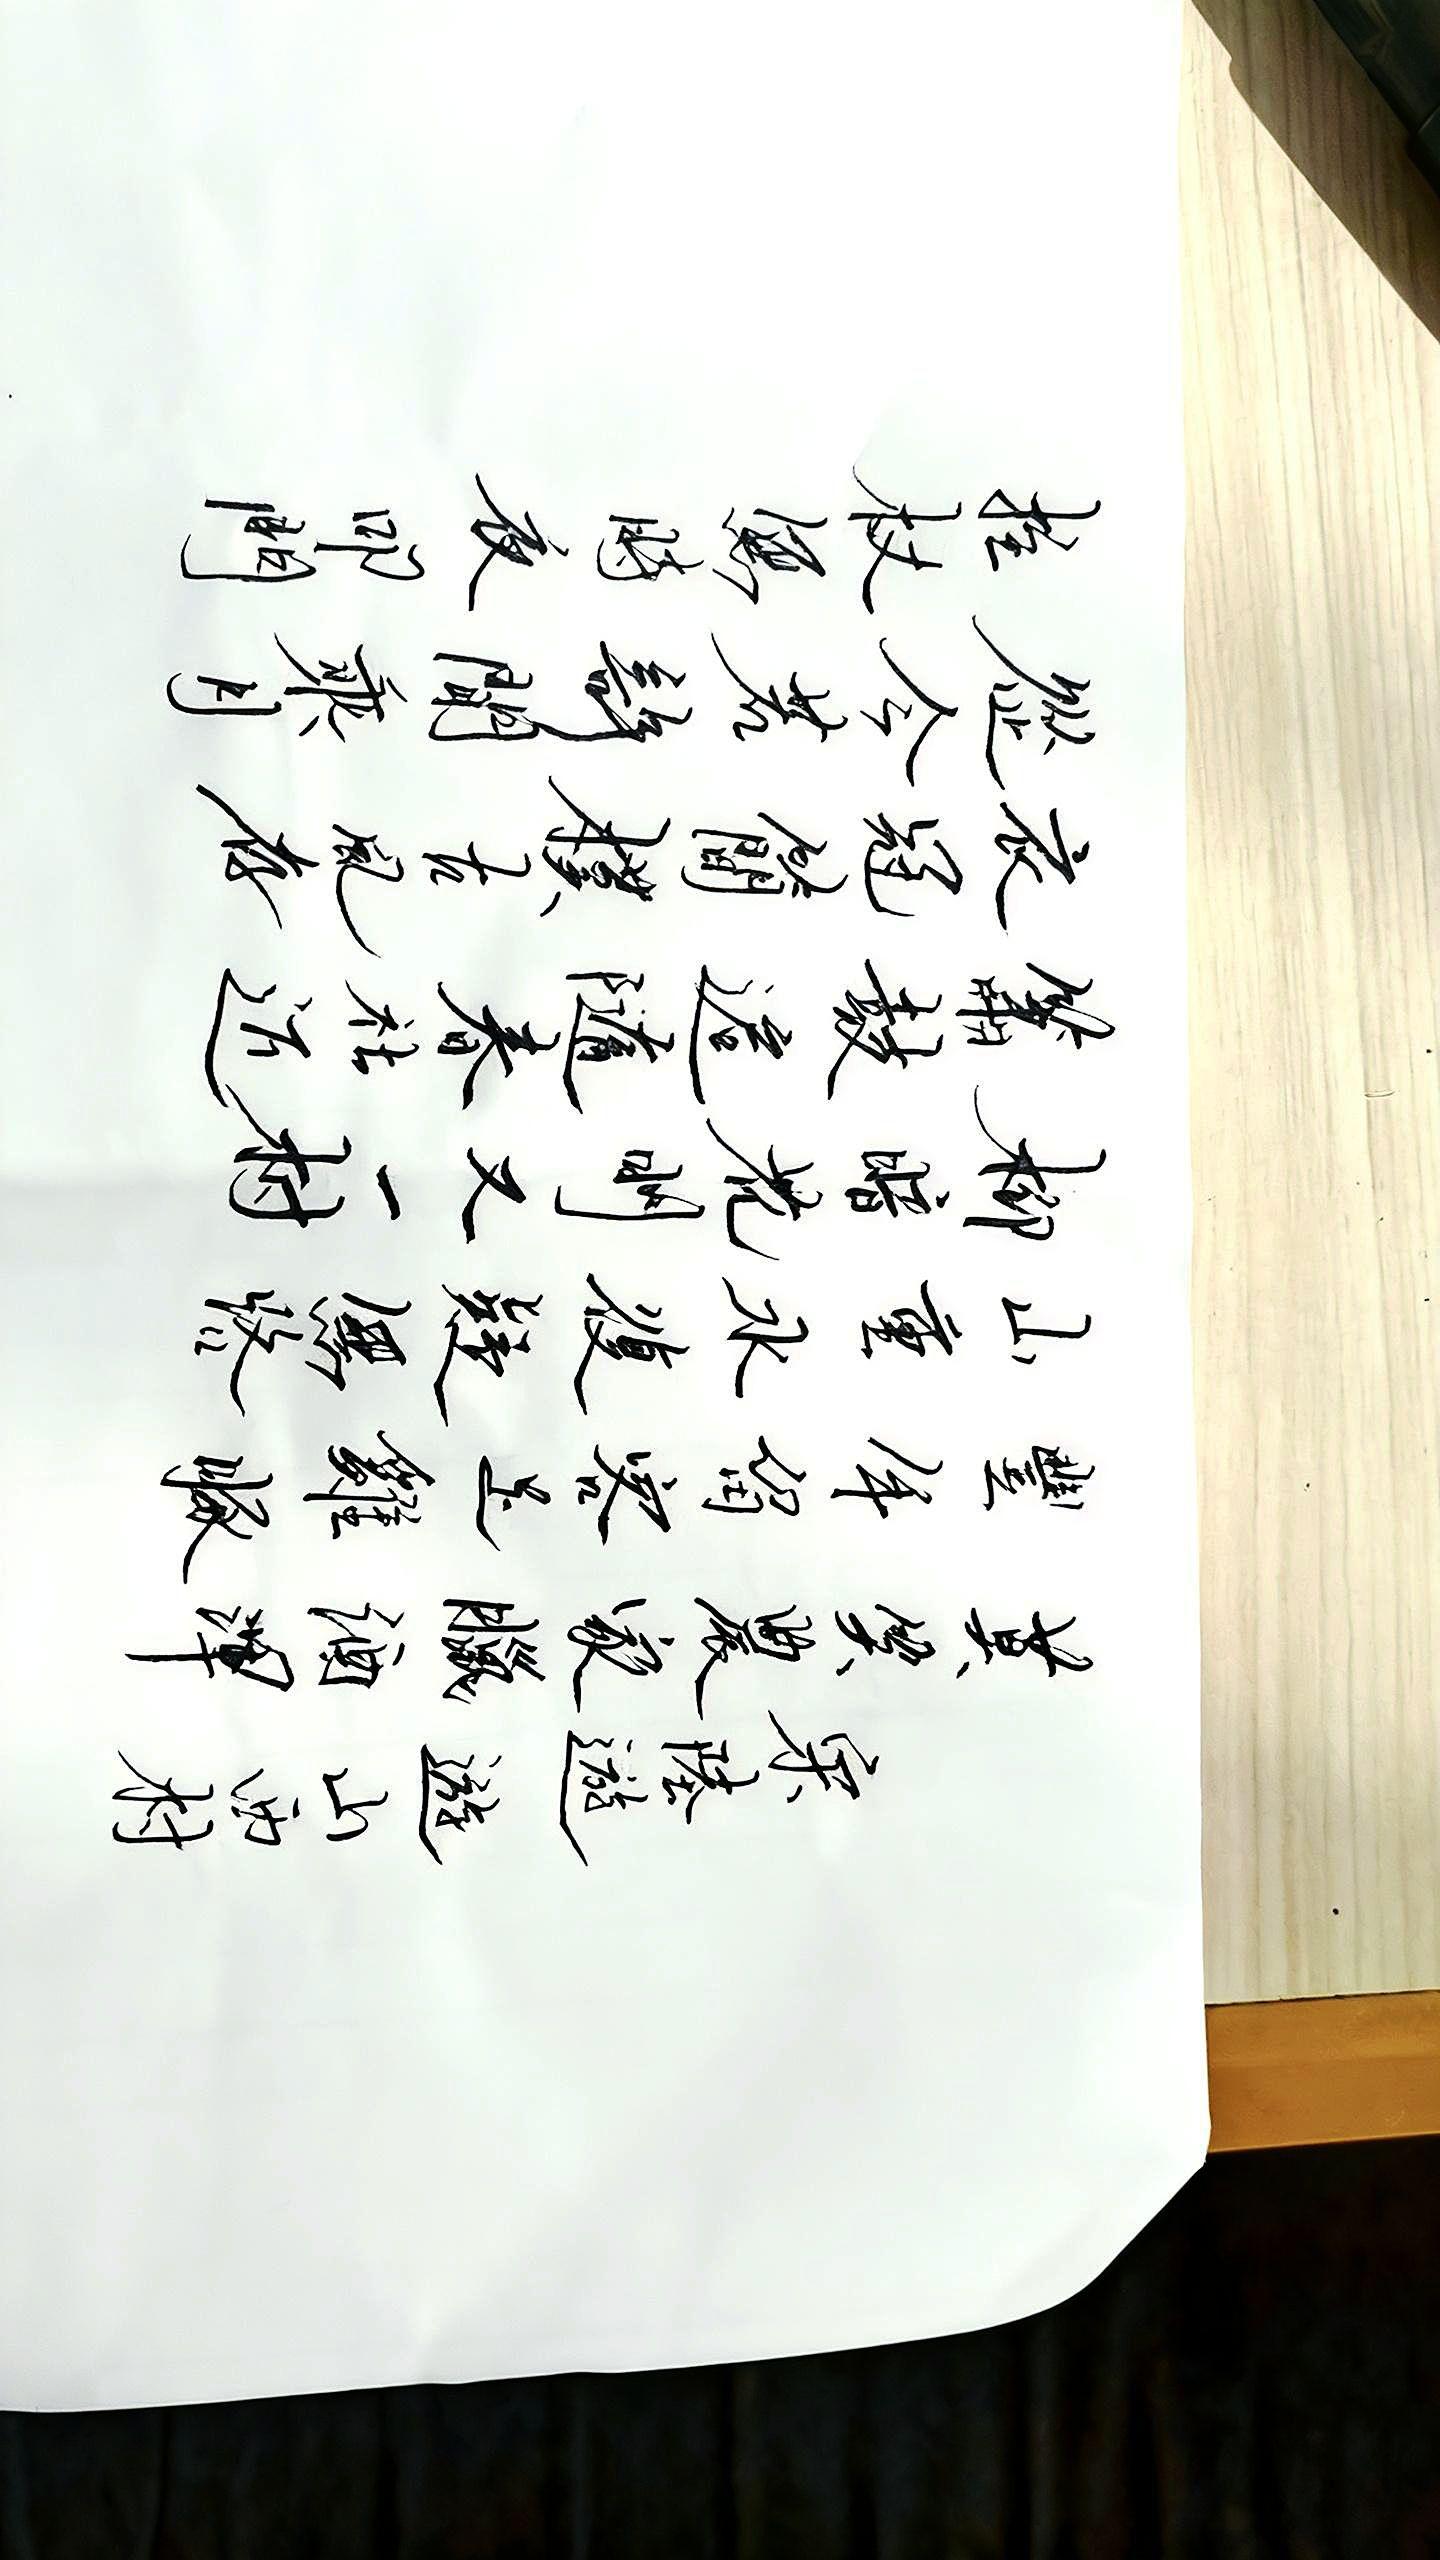 宋陸遊 遊山西村
莫笑農家臘酒渾
豐年留客足雞豚
山重水復疑無路
柳暗花明又一村
簫鼓追隨春社近
衣冠簡樸古風存
從今若許閒乘月
拄杖無時夜叩門